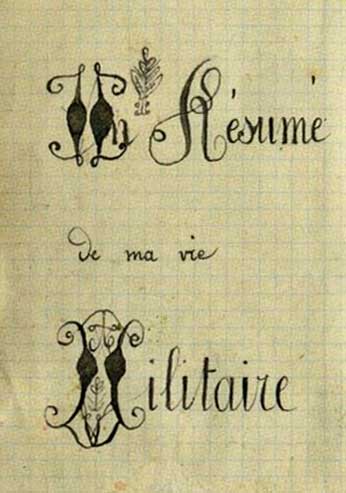 Un Résumé
de ma vie
Militaire